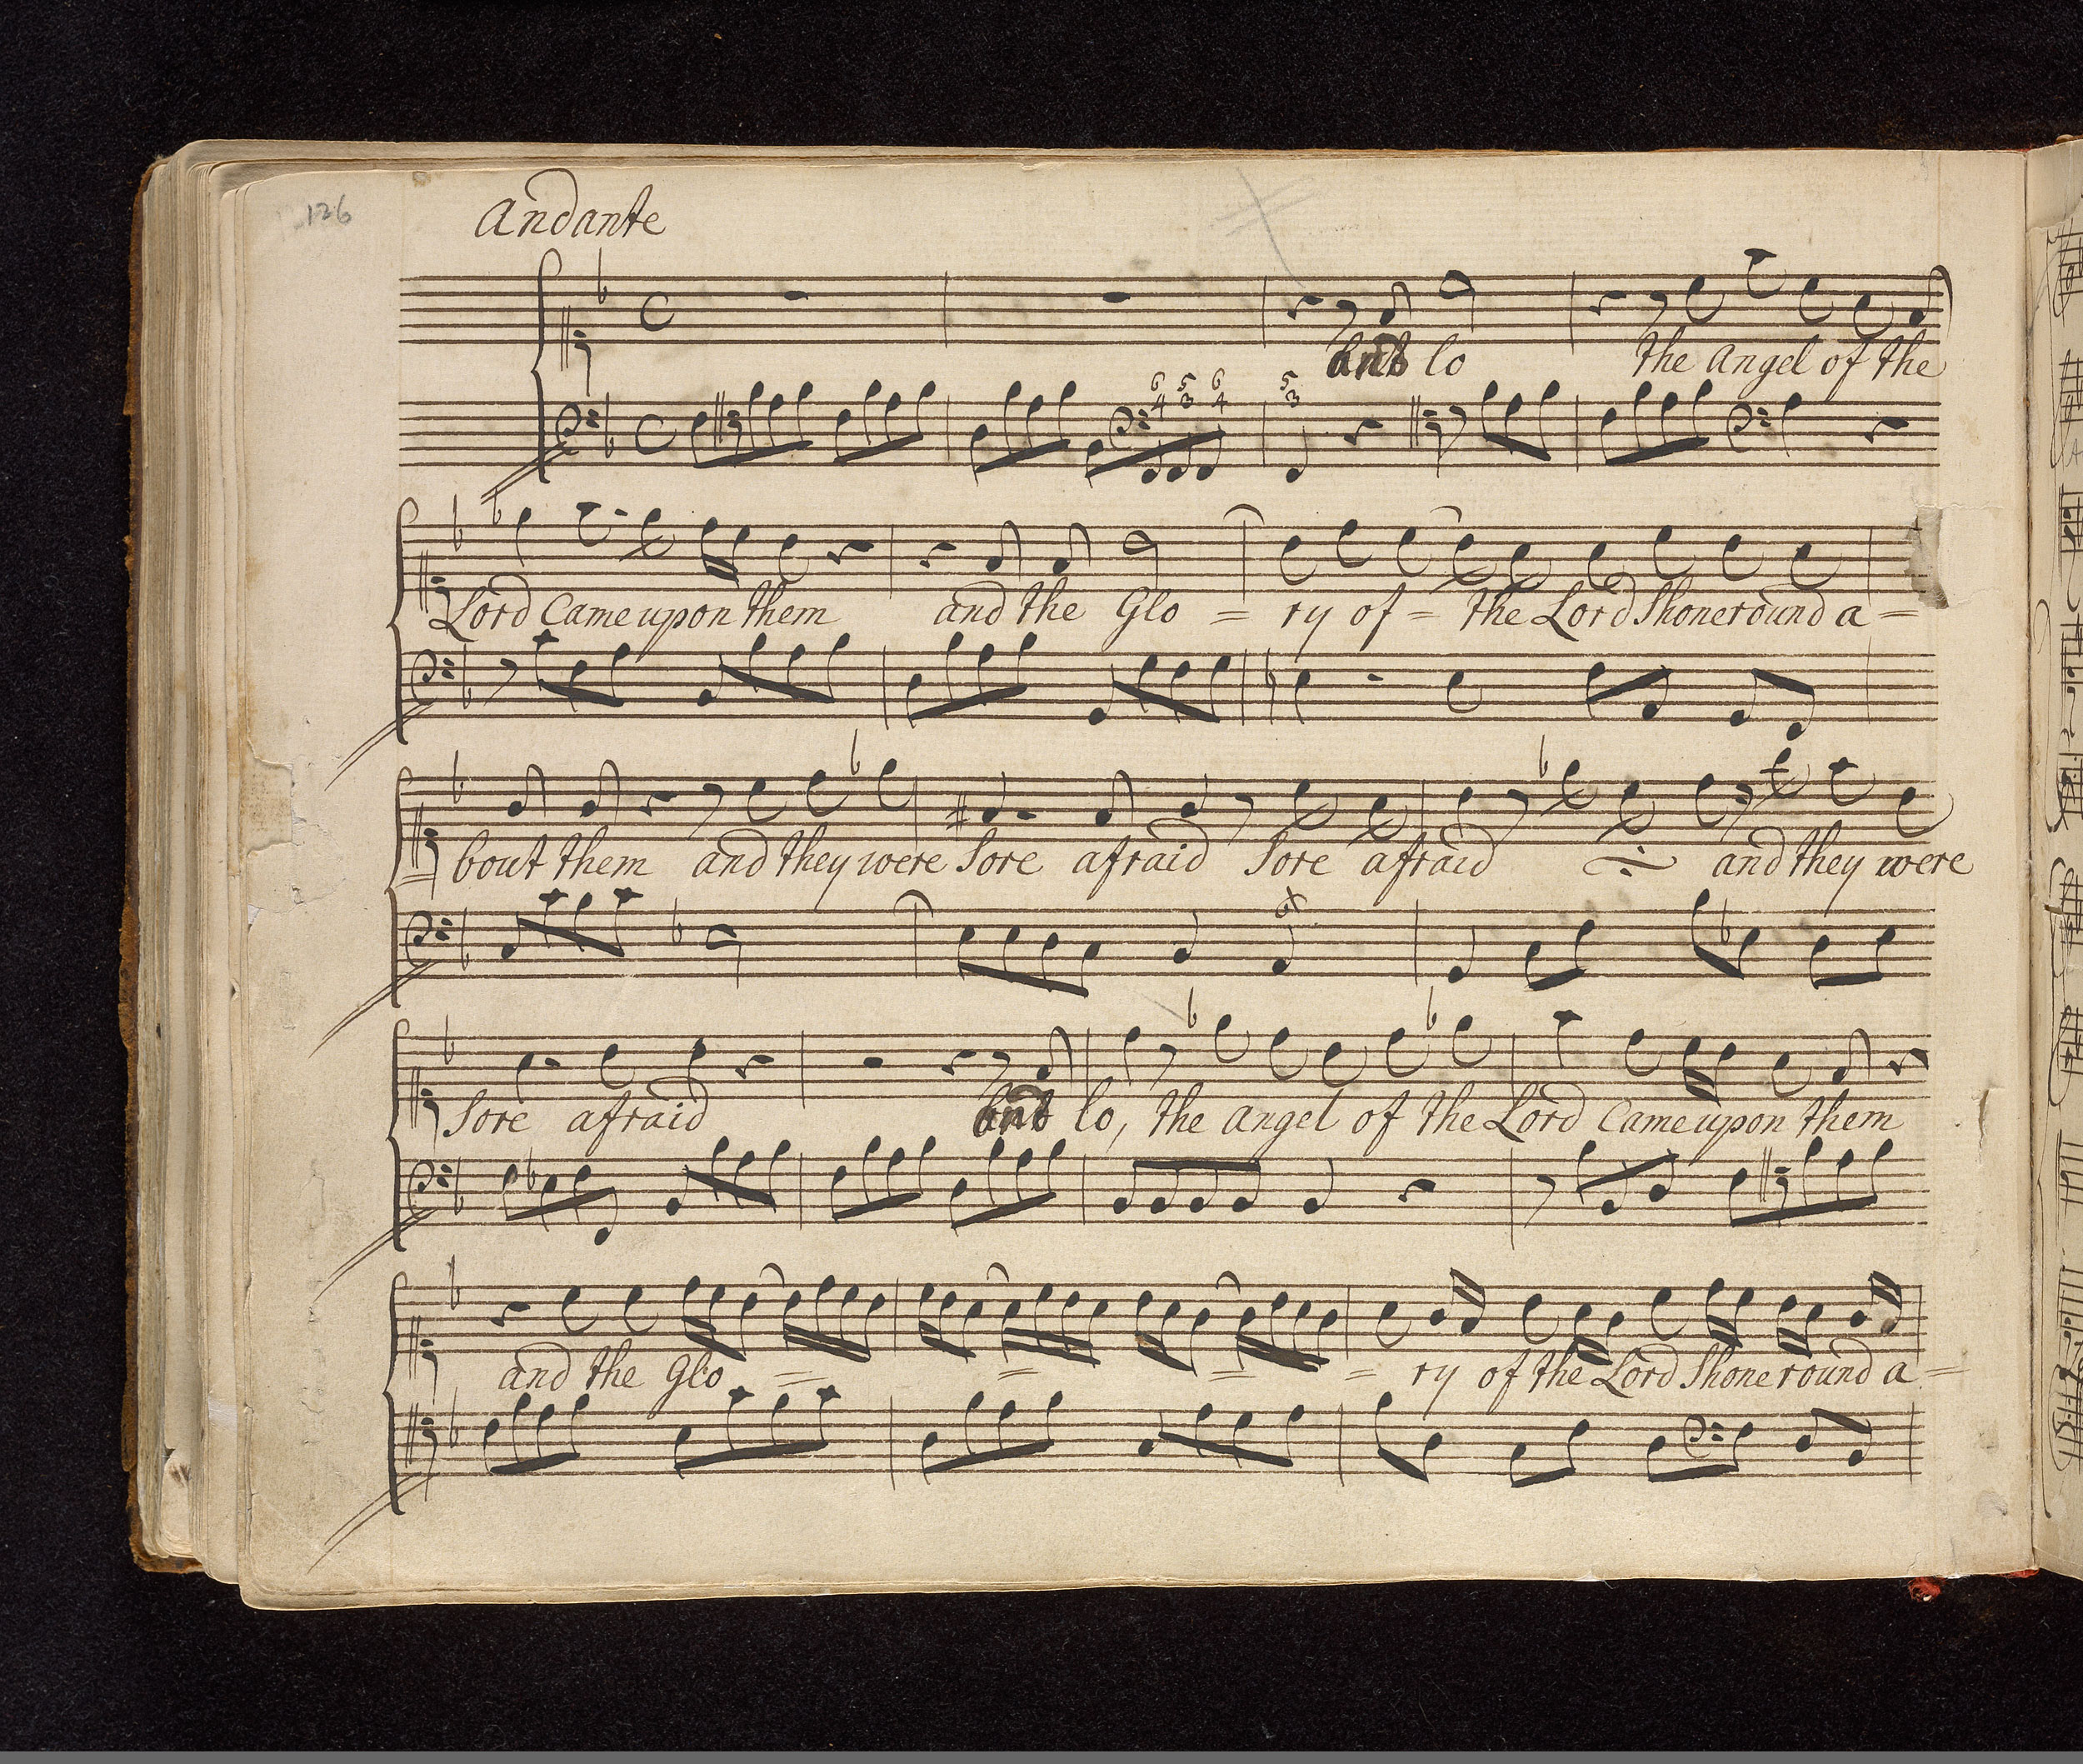 126
Andante
lo the Angel of the
6 5 6 5
4 3 4 3
Lord Came upon them and the Glo = ry of = the Lord Shone round a =
= bout them and they were Sore afraid Sore afraid and they were
Sore afraid lo, the Angel of the Lord Came upon them
and the Glo = = = = ry of the Lord Shone round a =